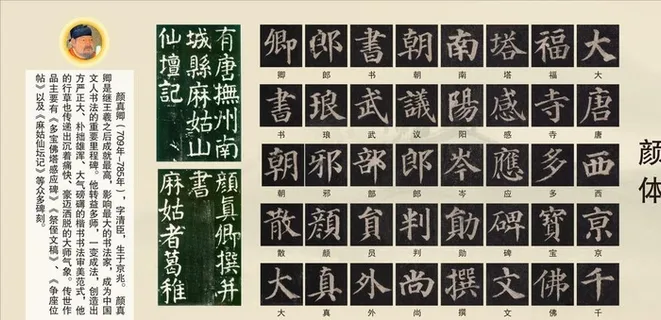 颜体
大唐西京千
大唐西京千
福寺多寶佛
福寺多宝佛
塔感應碑文
塔感应碑文
南陽岑勛撰
南阳岑勋撰
朝議郎判尚
朝议郎判尚
書武部員外
书武部员外
郎琅邪顔真
郎琅邪颜真
卿書朝散大
卿书朝散大
有唐撫州南
城縣麻姑山
仙壇記
顏真卿撰并
書
麻姑者葛稚
颜真卿（709年—785年），字清臣，生于京兆。颜真
卿是继王羲之后成就最高、影响最大的书法家，成为中国
文人书法的重要里程碑。他转益多师，一变成法，创造出
方严正大、朴拙雄浑、大气磅礴的楷书书法审美范式，他
的行草也传递出沉着痛快、豪迈洒脱的大师气象。传世作
品主要有《多宝佛塔感应碑》《祭侄文稿》、《争座位
帖》以及《麻姑仙坛记》等众多碑刻。